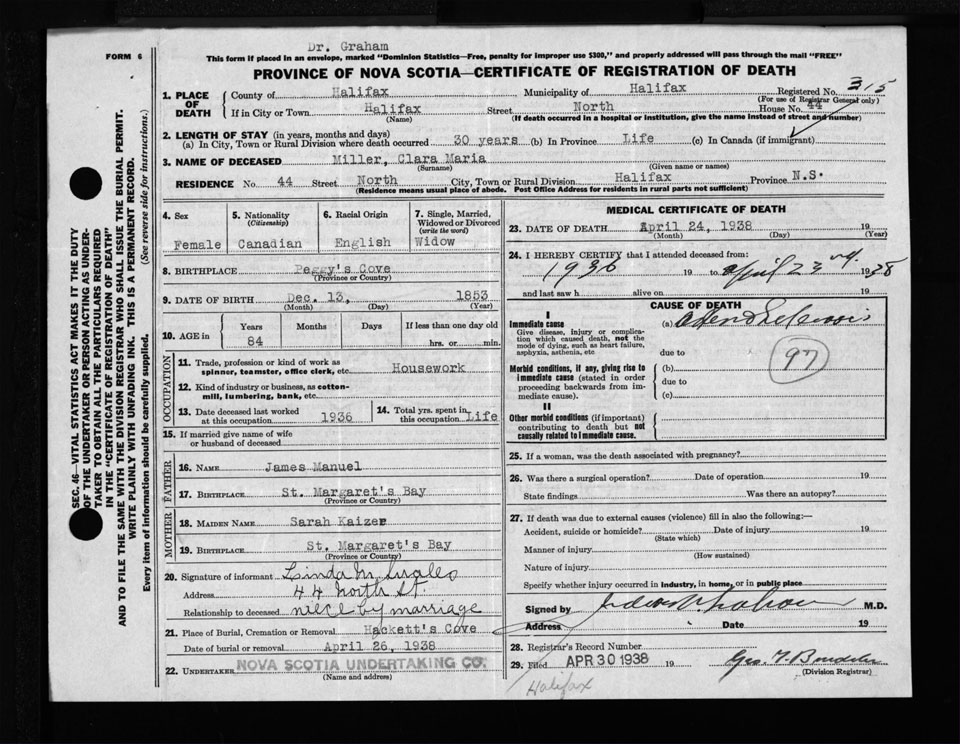 Dr. Graham
FORM 6
This form if placed in an envelope, marked "Dominion Statistics—Free, penalty for improper use $300," and properly addressed will pass through the mail "FREE"
PROVINCE OF NOVA SCOTIA—CERTIFICATE OF REGISTRATION OF DEATH
SEC. 46—VITAL STATISTICS ACT MAKES IT THE DUTY
OF THE UNDERTAKER OR PERSON ACTING AS UNDER-
TAKER TO OBTAIN ALL THE PARTICULARS REQUIRED
IN THE "CERTIFICATE OF REGISTRATION OF DEATH"
AND TO FILE THE SAME WITH THE DIVISION REGISTRAR WHO SHALL ISSUE THE BURIAL PERMIT.
WRITE PLAINLY WITH UNFADING INK. THIS IS A PERMANENT RECORD.
Every item of information should be carefully supplied. (See reverse side for instructions.)
1. PLACE OF DEATH
County of Halifax Municipality of Halifax Registered No. 315
(For use of Registrar General only)
If in City or Town Halifax Street North House No. 44
(Name) (If death occurred in a hospital or institution, give the name instead of street and number)
2. LENGTH OF STAY (in years, months and days)
(a) In City, Town or Rural Division where death occurred 30 years (b) In Province Life (c) In Canada (if immigrant)
3. NAME OF DECEASED Miller, Clara Maria
(Surname) (Given name or names)
RESIDENCE No. 44 Street North City, Town or Rural Division Halifax Province N.S.
(Residence means usual place of abode. Post Office Address for residents in rural parts not sufficient)
4. Sex Female
5. Nationality (Citizenship) Canadian
6. Racial Origin English
7. Single, Married, Widowed or Divorced (write the word) Widow
8. BIRTHPLACE Peggy's Cove
(Province or Country)
9. DATE OF BIRTH Dec. 13, 1853
(Month) (Day) (Year)
10. AGE in Years Months Days If less than one day old
84 hrs. or min.
OCCUPATION
11. Trade, profession or kind of work as spinner, teamster, office clerk, etc. Housework
12. Kind of industry or business, as cotten-mill, lumbering, bank, etc.
13. Date deceased last worked at this occupation 1936
14. Total yrs. spent in this occupation Life
15. If married give name of wife or husband of deceased
FATHER
16. NAME James Manuel
17. BIRTHPLACE St. Margaret's Bay
(Province or Country)
MOTHER
18. MAIDEN NAME Sarah Kaizer
19. BIRTHPLACE St. Margaret's Bay
(Province or Country)
20. Signature of informant Linda M.
Address 44 North St.
Relationship to deceased niece by marriage
21. Place of Burial, Cremation or Removal Hackett's Cove
Date of burial or removal April 26, 1938
22. UNDERTAKER NOVA SCOTIA UNDERTAKING CO.
(Name and address)
MEDICAL CERTIFICATE OF DEATH
23. DATE OF DEATH April 24, 1938 19
(Month) (Day) (Year)
24. I HEREBY CERTIFY that I attended deceased from:
1936 19 to April 23rd. 1938
and last saw h alive on 19
CAUSE OF DEATH
I
Immediate cause
Give disease, injury or complica-
tion which caused death, not the
mode of dying, such as heart failure,
asphyxia, asthenia, etc
(a)
due to
97
Morbid conditions, if any, giving rise to
immediate cause (stated in order
proceeding backwards from im-
mediate cause).
(b)
due to
(c)
II
Other morbid conditions (if important)
contributing to death but not
causally related to immediate cause.
25. If a woman, was the death associated with pregnancy?
26. Was there a surgical operation? Date of operation 19
State findings Was there an autopsy?
27. If death was due to external causes (violence) fill in also the following:—
Accident, suicide or homicide? Date of injury 19
(State which)
Manner of injury
(How sustained)
Nature of injury
Specify whether injury occurred in industry, in home, or in public place
Signed by M.D.
Address Date 19
28. Registrar's Record Number
29. Filed APR 30 1938 19 Geo. T.
(Division Registrar)
Halifax